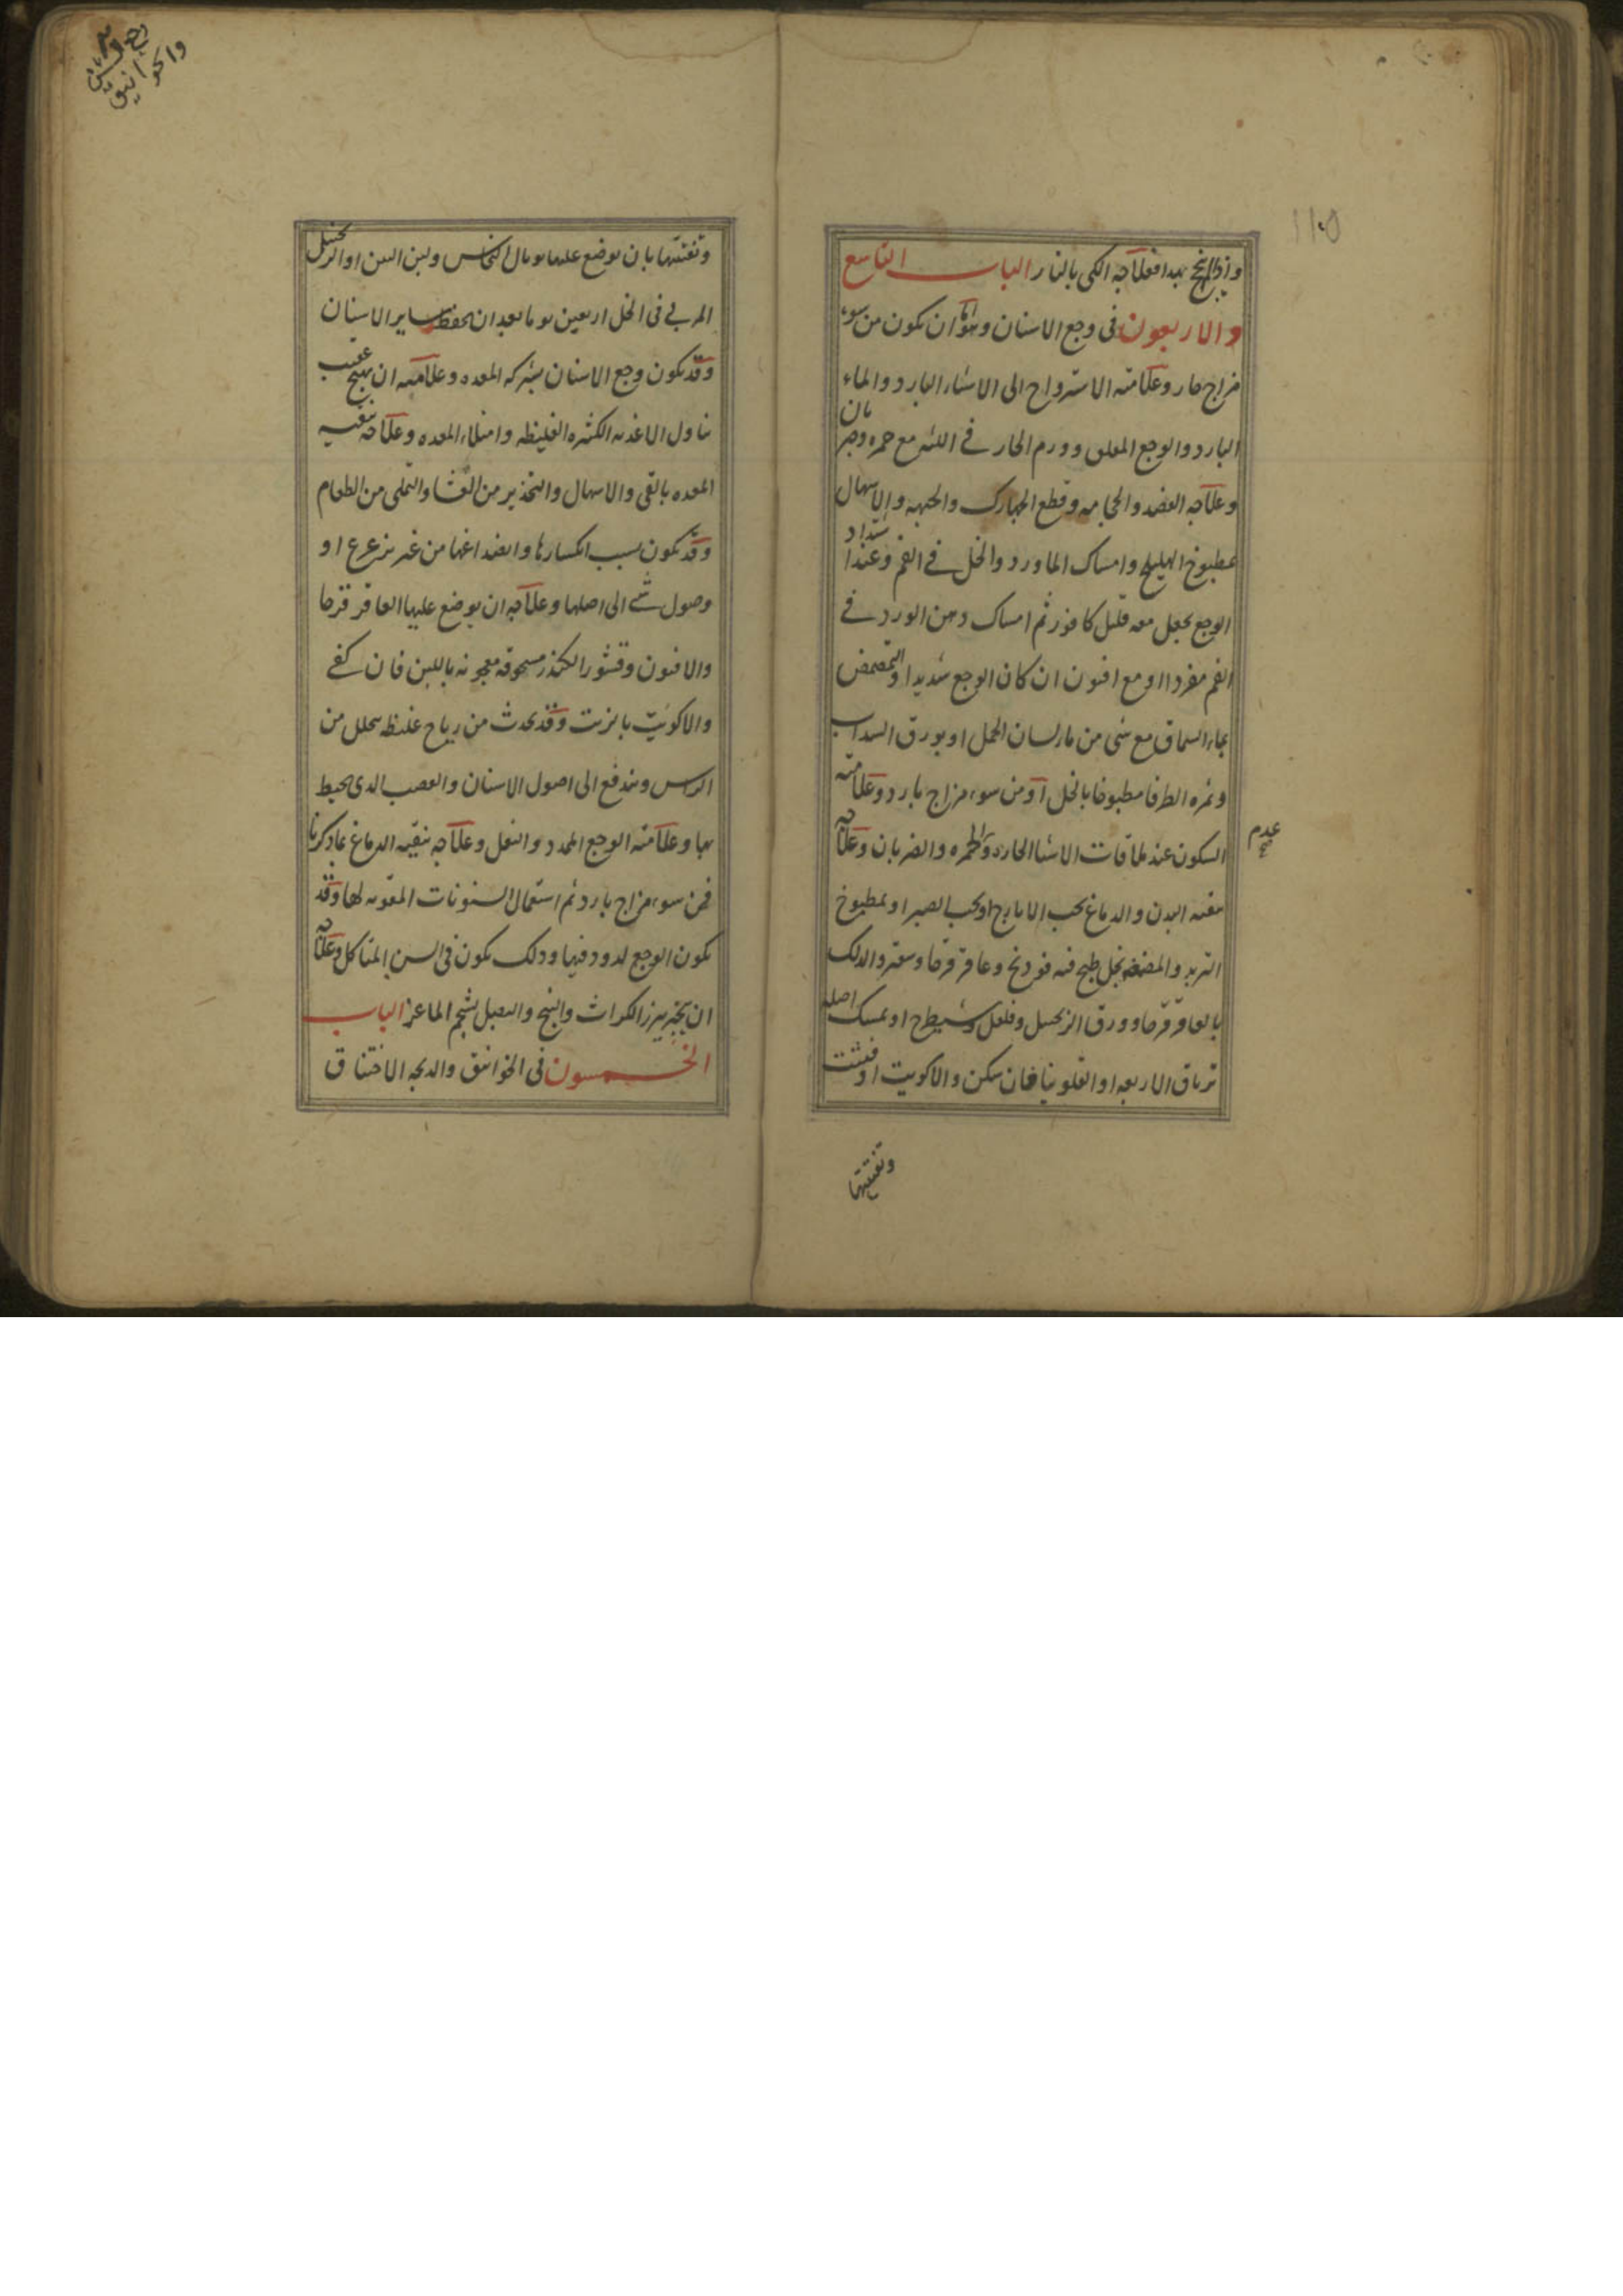 ١١٥
واذا لم ينجح بهذا فعلاجه الكي بالنار الباب التاسع
والاربعون في وجع الاسنان وهو اما ان يكون من سوء
مزاج حار وعلامته الاسترواح الى الاشياء البارد والماء
البارد والوجع المقلق وورم الحار في اللثه مع حمره وضربان
وعلاجه الفصد والحجامه وقطع الجهارك والجبهه والاسهال
بمطبوخ الهليلج وامساك الماورد والخل في الفم وعند اشتداد
الوجع يجعل معه قليل كافور ثم امساك دهن الورد في
الفم مفردا او مع افيون ان كان الوجع شديدا والتمضمض
بماء السماق مع شي من ماء لسان الحمل او بورق السداب
وثمره الطرفا مطبوخا بالخل او من سوء مزاج بارد وعلامته
السكون عند ملاقات الاشيا الحاره والحمره والضربان وعلاجه
عدم صح
تنقيه البدن والدماغ بحب الايارج او بحب الصبر او بمطبوخ
التربد والمضمضه بخل طبخ فيه فودنج وعاقرقرحا وسعتر والدلك
بالعاقرقرحا وورق الزنجبيل وفلفل وشيطرج او يمسك اصله
ترياق الاربعه او الفلونيا فان سكن والا كويت او فتتت
وتفتيتها
وتفتيتها بان يوضع عليها توبال النحاس ولبن التين او الزنجبيل
المربى في الخل اربعين يوما بعد ان يحفظ ساير الاسنان
وقد يكون وجع الاسنان بشركه المعده وعلامته ان يهيج عقيب
تناول الاغذيه الكثيره الغليظه وامتلاء المعده وعلاجه تنقيه
المعده بالقي والاسهال والتحذير من العشا والتملي من الطعام
وقد يكون بسبب انكسارها وانصداعها من غير تزعزع او
وصول شي الى اصلها وعلاجه ان يوضع عليها العاقرقرحا
والافيون وقشور الكندر مسحوقه معجونه باللبن فان كفى
والا كويت بالزيت وقد يحدث من رياح غليظه يتحلل من
الراس ويندفع الى اصول الاسنان والعصب الذي يحيط
بها وعلامته الوجع الممدد والثقل وعلاجه تنقيه الدماغ بما ذكرنا
فى سوء مزاج بارد ثم استعمال السنونات المقويه لها وقد
يكون الوجع لدود فيها وذلك يكون في السن المتاكل وعلاجه
ان يبخر ببزر الكراث والبنج والبصل بشحم الماعز الباب
الخمسون في الخوانيق والذبحه الاختناق